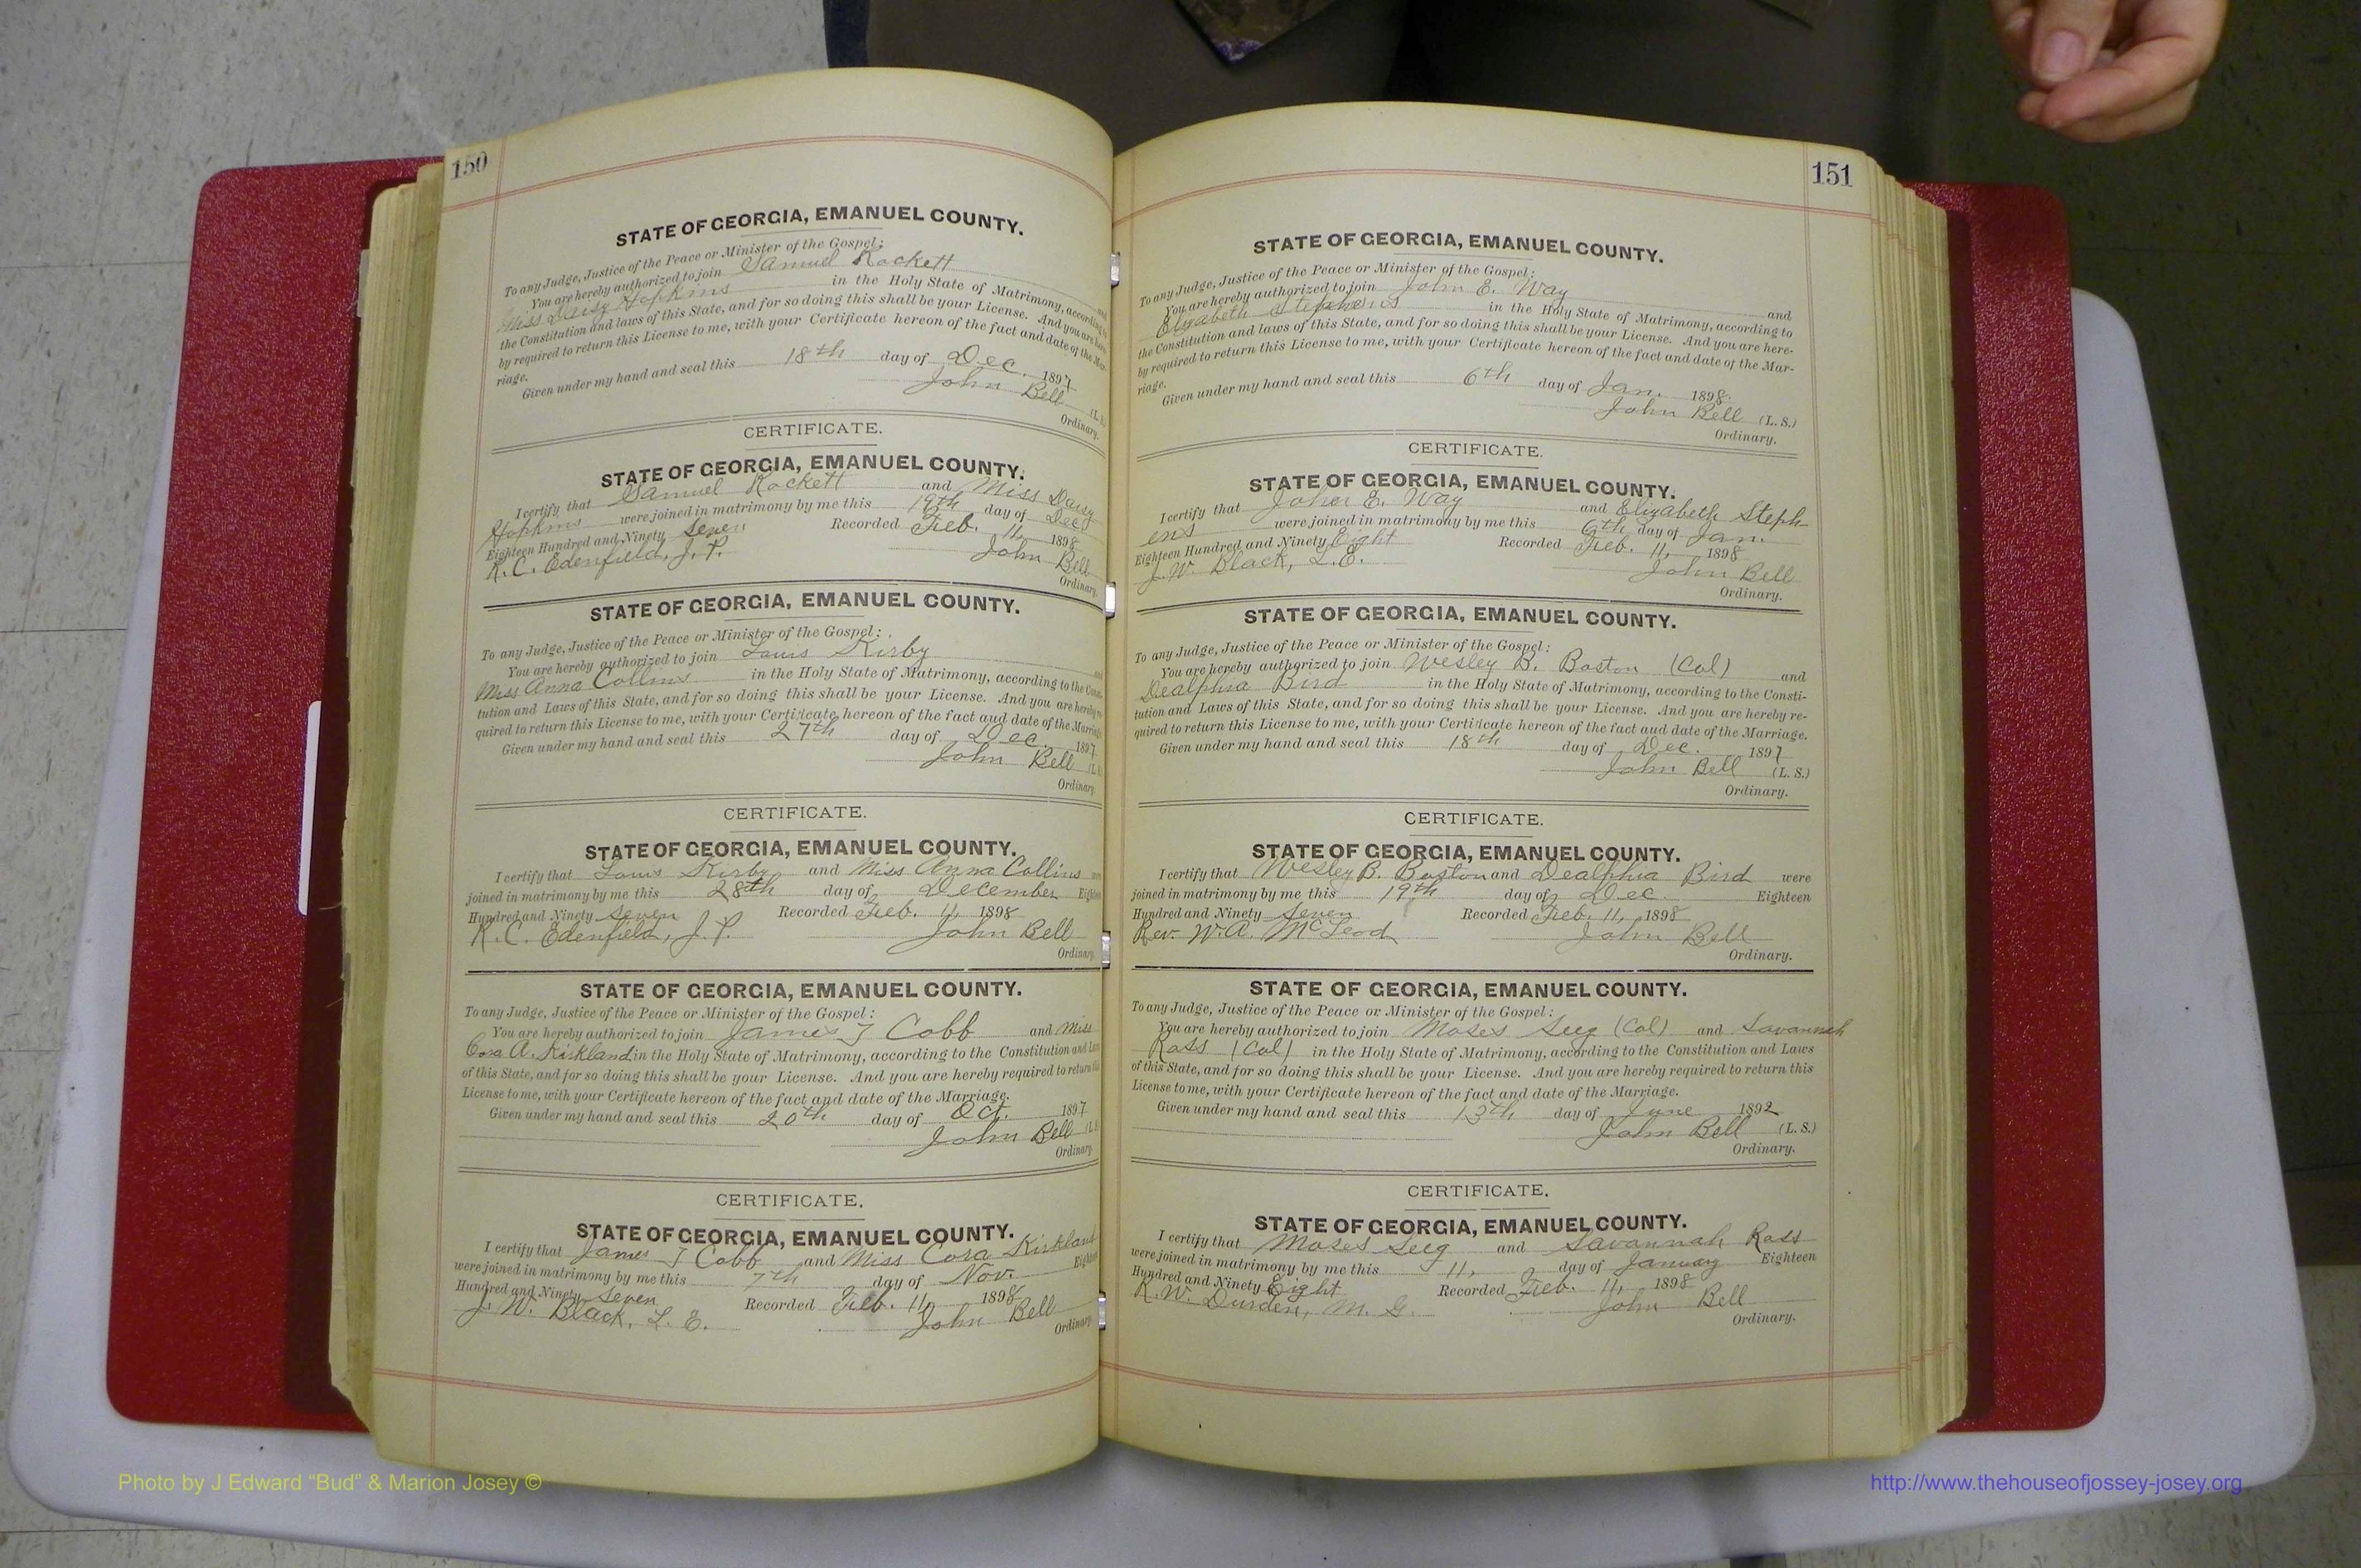 150
STATE OF GEORGIA, EMANUEL COUNTY.
To any Judge, Justice of the Peace or Minister of the Gospel:
You are hereby authorized to join Samuel Rockett and
Miss Daisy Hopkins in the Holy State of Matrimony, according to
the Constitution and laws of this State, and for so doing this shall be your License. And you are here-
by required to return this License to me, with your Certificate hereon of the fact and date of the Mar-
riage.
Given under my hand and seal this 18th day of Dec. 1897
John Bell (L.
Ordinary.
CERTIFICATE.
STATE OF GEORGIA, EMANUEL COUNTY.
I certify that Samuel Rockett and Miss Daisy
Hopkins were joined in matrimony by me this 19th day of Dec
Eighteen Hundred and Ninety seven Recorded Feb. 11, 1898
R. C. Edenfield, J. P. John Bell
Ordinary.
STATE OF GEORGIA, EMANUEL COUNTY.
To any Judge, Justice of the Peace or Minister of the Gospel:
You are hereby authorized to join Louis Kirby and
Miss Anna Collins in the Holy State of Matrimony, according to the Consti-
tution and Laws of this State, and for so doing this shall be your License. And you are hereby re-
quired to return this License to me, with your Certificate hereon of the fact and date of the Marriage
Given under my hand and seal this 27th day of Dec. 1897
John Bell (L
Ordinary.
CERTIFICATE.
STATE OF GEORGIA, EMANUEL COUNTY.
I certify that Louis Kirby and Miss Anna Collins were
joined in matrimony by me this 28th day of December Eighteen
Hundred and Ninety seven Recorded Feb. 11, 1898
R. C. Edenfield, J. P. John Bell
Ordinary.
STATE OF GEORGIA, EMANUEL COUNTY.
To any Judge, Justice of the Peace or Minister of the Gospel:
You are hereby authorized to join James J Cobb and Miss
Cora A. Kirkland in the Holy State of Matrimony, according to the Constitution and Laws
of this State, and for so doing this shall be your License. And you are hereby required to return this
License to me, with your Certificate hereon of the fact and date of the Marriage.
Given under my hand and seal this 20th day of Oct. 1897
John Bell (L.
Ordinary.
CERTIFICATE.
STATE OF GEORGIA, EMANUEL COUNTY.
I certify that James J Cobb and Miss Cora Kirkland
were joined in matrimony by me this 7th day of Nov. Eighteen
Hundred and Ninety seven Recorded Feb. 11, 1898
J. W. Black, L. E. John Bell
Ordinary.
151
STATE OF GEORGIA, EMANUEL COUNTY.
To any Judge, Justice of the Peace or Minister of the Gospel:
You are hereby authorized to join John E. Way and
Elizabeth Stephens in the Holy State of Matrimony, according to
the Constitution and laws of this State, and for so doing this shall be your License. And you are here-
by required to return this License to me, with your Certificate hereon of the fact and date of the Mar-
riage.
Given under my hand and seal this 6th day of Jan. 1898.
John Bell (L. S.)
Ordinary.
CERTIFICATE.
STATE OF GEORGIA, EMANUEL COUNTY.
I certify that John E. Way and Elizabeth Steph
ens were joined in matrimony by me this 6th day of Jan.
Eighteen Hundred and Ninety Eight Recorded Feb. 11, 1898
J. W. Black, L.E. John Bell
Ordinary.
STATE OF GEORGIA, EMANUEL COUNTY.
To any Judge, Justice of the Peace or Minister of the Gospel:
You are hereby authorized to join Wesley B. Boston (Col) and
Dealphia Bird in the Holy State of Matrimony, according to the Consti-
tution and Laws of this State, and for so doing this shall be your License. And you are hereby re-
quired to return this License to me, with your Certificate hereon of the fact and date of the Marriage.
Given under my hand and seal this 18th day of Dec. 1897
John Bell (L. S.)
Ordinary.
CERTIFICATE.
STATE OF GEORGIA, EMANUEL COUNTY.
I certify that Wesley B. Boston and Dealphia Bird were
joined in matrimony by me this 19th day of Dec. Eighteen
Hundred and Ninety seven Recorded Feb. 11, 1898
Rev. W. A. McLeod John Bell
Ordinary.
STATE OF GEORGIA, EMANUEL COUNTY.
To any Judge, Justice of the Peace or Minister of the Gospel:
You are hereby authorized to join Moses Seeg (Col) and Savannah
Ross (Col) in the Holy State of Matrimony, according to the Constitution and Laws
of this State, and for so doing this shall be your License. And you are hereby required to return this
License to me, with your Certificate hereon of the fact and date of the Marriage.
Given under my hand and seal this 13th day of June 1892
John Bell (L. S.)
Ordinary.
CERTIFICATE.
STATE OF GEORGIA, EMANUEL COUNTY.
I certify that Moses Seeg and Savannah Ross
were joined in matrimony by me this 11, day of January Eighteen
Hundred and Ninety Eight Recorded Feb. 11, 1898
R. W. Durden, M. G. John Bell
Ordinary.
Photo by J Edward “Bud” & Marion Josey ©
http://www.thehouseofjossey-josey.org